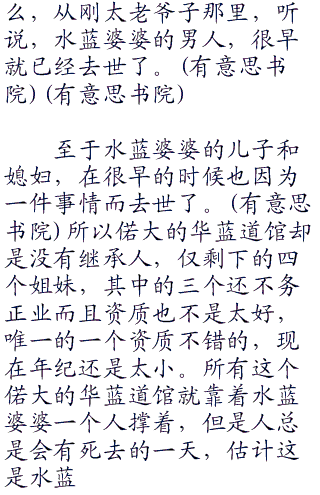 么，从刚太老爷子那里，听
说，水蓝婆婆的男人，很早
就已经去世了。(有意思书
院)(有意思书院)
至于水蓝婆婆的儿子和
媳妇，在很早的时候也因为
一件事情而去世了。(有意思
书院)所以偌大的华蓝道馆却
是没有继承人，仅剩下的四
个姐妹，其中的三个还不务
正业而且资质也不是太好，
唯一的一个资质不错的，现
在年纪还是太小。所有这个
偌大的华蓝道馆就靠着水蓝
婆婆一个人撑着，但是人总
是会有死去的一天，估计这
是水蓝